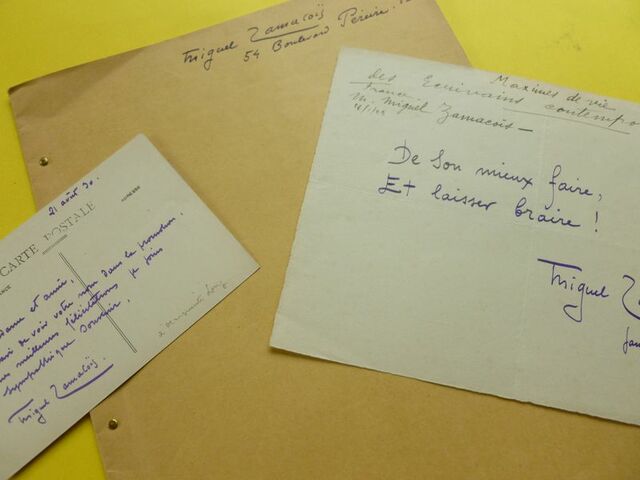 Miguel Zamacoïs
54 Boulevard Péreire.
Maximes de vie
des Ecrivains contempo
France.
M. Miguel Zamacoïs —
De son mieux faire,
Et laisser braire !
Miguel Za
21 août 30.
CARTE POSTALE
ADRESSE
dame et amie,
ravi de voir votre nom dans la promotion,
mes meilleures félicitations je joins
sympathique souvenir,
Miguel Zamacoïs